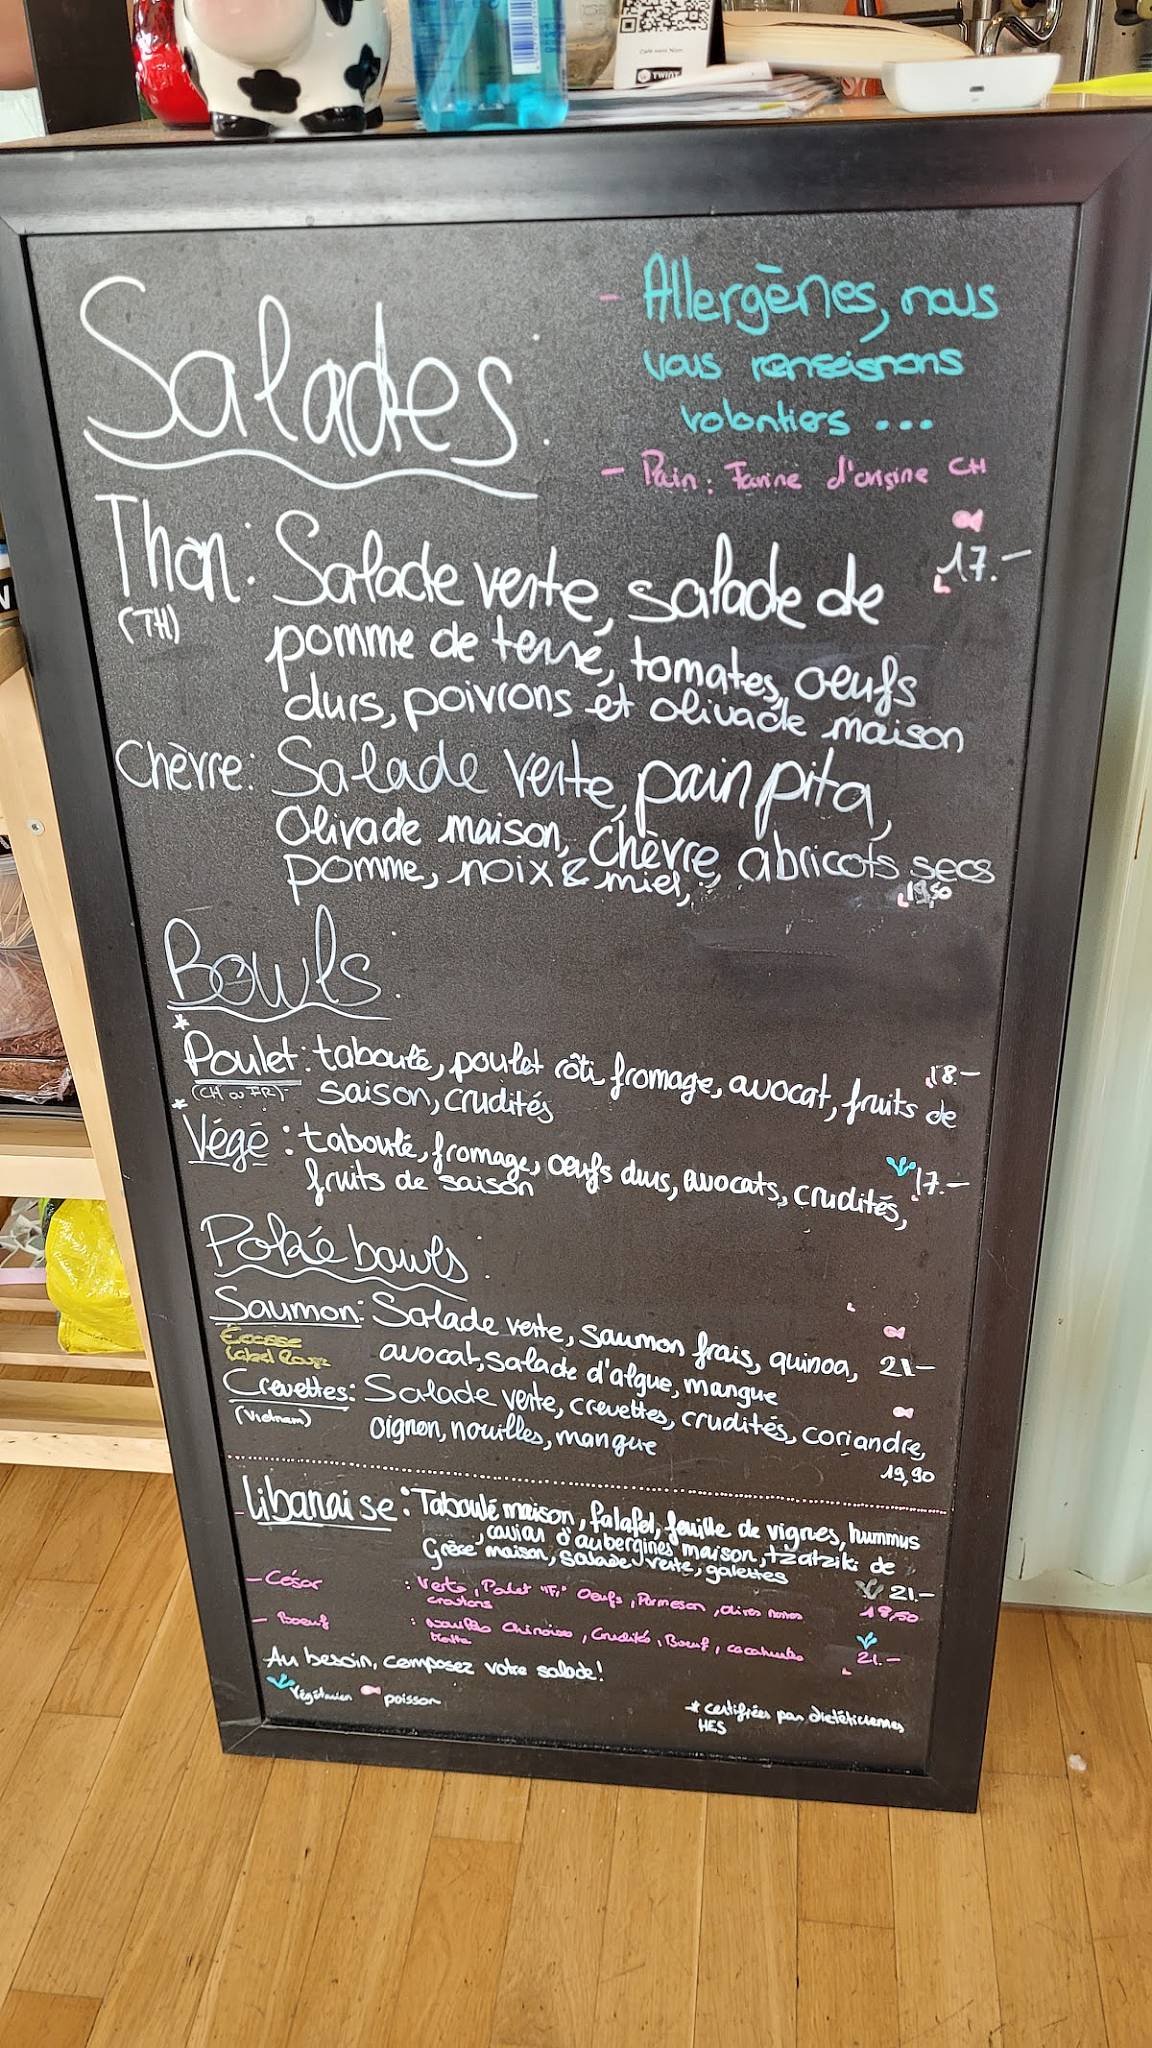 Café sans Nom
TWINT
Salades:
- Allergènes, nous
vous renseignons
volontiers ...
- Pain: Farine d'origine CH
Thon: Salade verte, salade de
17.-
(TH)
pomme de terre, tomates, oeufs
durs, poivrons et olivade maison
Chèvre: Salade verte, pain pita,
Olivade maison, Chèvre, abricots secs
pomme, noix & miel,
19,50
Bowls:
* Poulet: taboulé, poulet rôti, fromage, avocat, fruits de
18.-
(CH ou FR)
saison, crudités
* Végé: taboulé, fromage, oeufs durs, avocats, crudités,
17.-
fruits de saison
Poké bowls:
Saumon: Salade verte, saumon frais, quinoa,
21-
Écosse
Label Rouge
avocat, salade d'algue, mangue
Crevettes: Salade verte, crevettes, crudités, coriandre,
(Vietnam)
oignon, nouilles, mangue
19,90
Libanaise: Taboulé maison, falafel, feuille de vignes, hummus
, caviar d'aubergines maison, tzatziki de
Grèce maison, salade verte, galettes
21.-
- César : Verte, Poulet "Fr" Oeufs, Parmesan, olives noires
croutons
- Boeuf : nouilles Chinoise, Crudités, Boeuf, cacahuetes
21.-
Au besoin, composez votre salade!
végétarien poisson
* certifiées par diététiciennes
HES